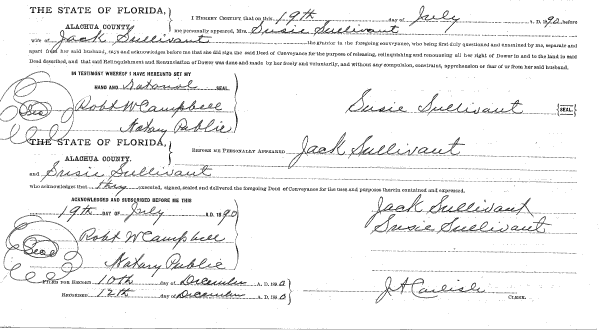 THE STATE OF FLORIDA,
ALACHUA COUNTY.
I HEREBY CERTIFY, that on this 19th day of July A. D. 1890, before
me personally appeared, Mrs. Susie Sullivant
wife of Jack Sullivant the grantor in the foregoing conveyance, who being first duly questioned and examined by me, separate and
apart from her said husband, says and acknowledges before me that she did sign the said Deed of Conveyance for the purpose of releasing, relinquishing and renouncing all her right of Dower in and to the land in said
Deed described, and that said Relinquishment and Renunciation of Dower was done and made by her freely and voluntarily, and without any compulsion, constraint, apprehension or fear of or from her said husband.
IN TESTIMONY WHEREOF I HAVE HEREUNTO SET MY
HAND AND Notarial SEAL
Robt W Campbell
Seal
Notary Public
Susie Sullivant SEAL.
THE STATE OF FLORIDA,
ALACHUA COUNTY.
BEFORE ME PERSONALLY APPEARED Jack Sullivant
and Susie Sullivant
who acknowledges that they executed, signed, sealed and delivered the foregoing Deed of Conveyance for the uses and purposes therein contained and expressed.
ACKNOWLEDGED AND SUBSCRIBED BEFORE ME THIS
19th DAY OF July A. D. 1890
Jack Sullivant
Susie Sullivant
Robt W Campbell
Seal
Notary Public
FILED FOR RECORD 10th day of December A. D. 1890
RECORDED 12th day of December A. D. 1890
J A Carlisle CLERK.